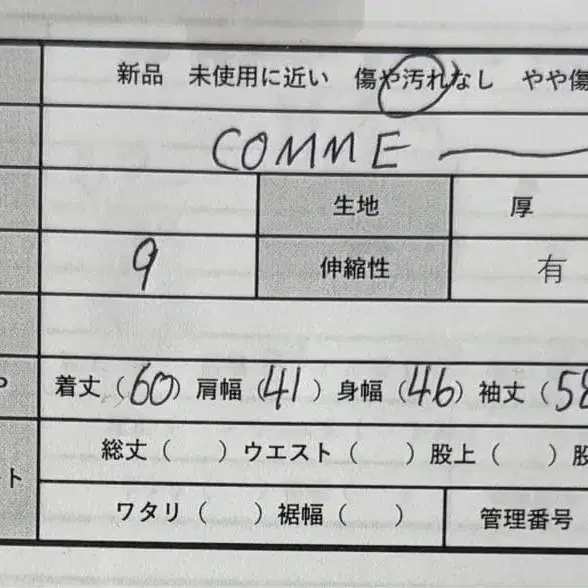 新品 未使用に近い 傷や汚れなし やや傷
COMME
生地 厚
9 伸縮性 有
着丈(60) 肩幅(41) 身幅(46) 袖丈(58
総丈( ) ウエスト( ) 股上( ) 股
ワタリ( ) 裾幅( ) 管理番号